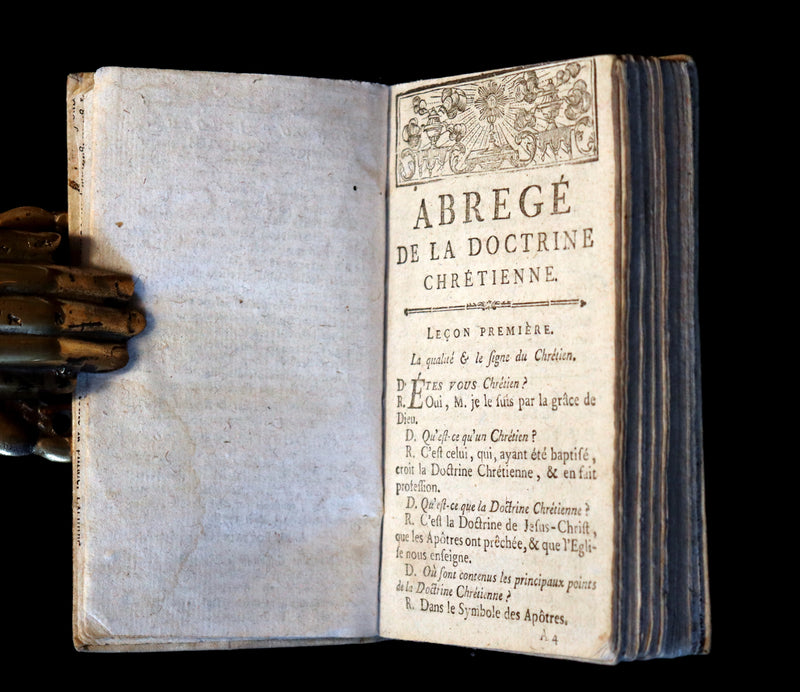 ABREGÉ
DE LA DOCTRINE
CHRÉTIENNE.
LEÇON PREMIÈRE.
La qualité & le ſigne du Chrétien.
D. ÊTES VOUS Chrétien ?
R. Oui, M. je le ſuis par la grâce de
Dieu.
D. Qu'eſt-ce qu'un Chrétien ?
R. C'eſt celui, qui, ayant été baptiſé,
croit la Doctrine Chrétienne, & en fait
profeſſion.
D. Qu'eſt-ce que la Doctrine Chrétienne ?
R. C'eſt la Doctrine de Jeſus-Chriſt,
que les Apôtres ont prêchée, & que l'Egli-
ſe nous enſeigne.
D. Où ſont contenus les principaux points
de la Doctrine Chrétienne ?
R. Dans le Symbole des Apôtres.
A 4